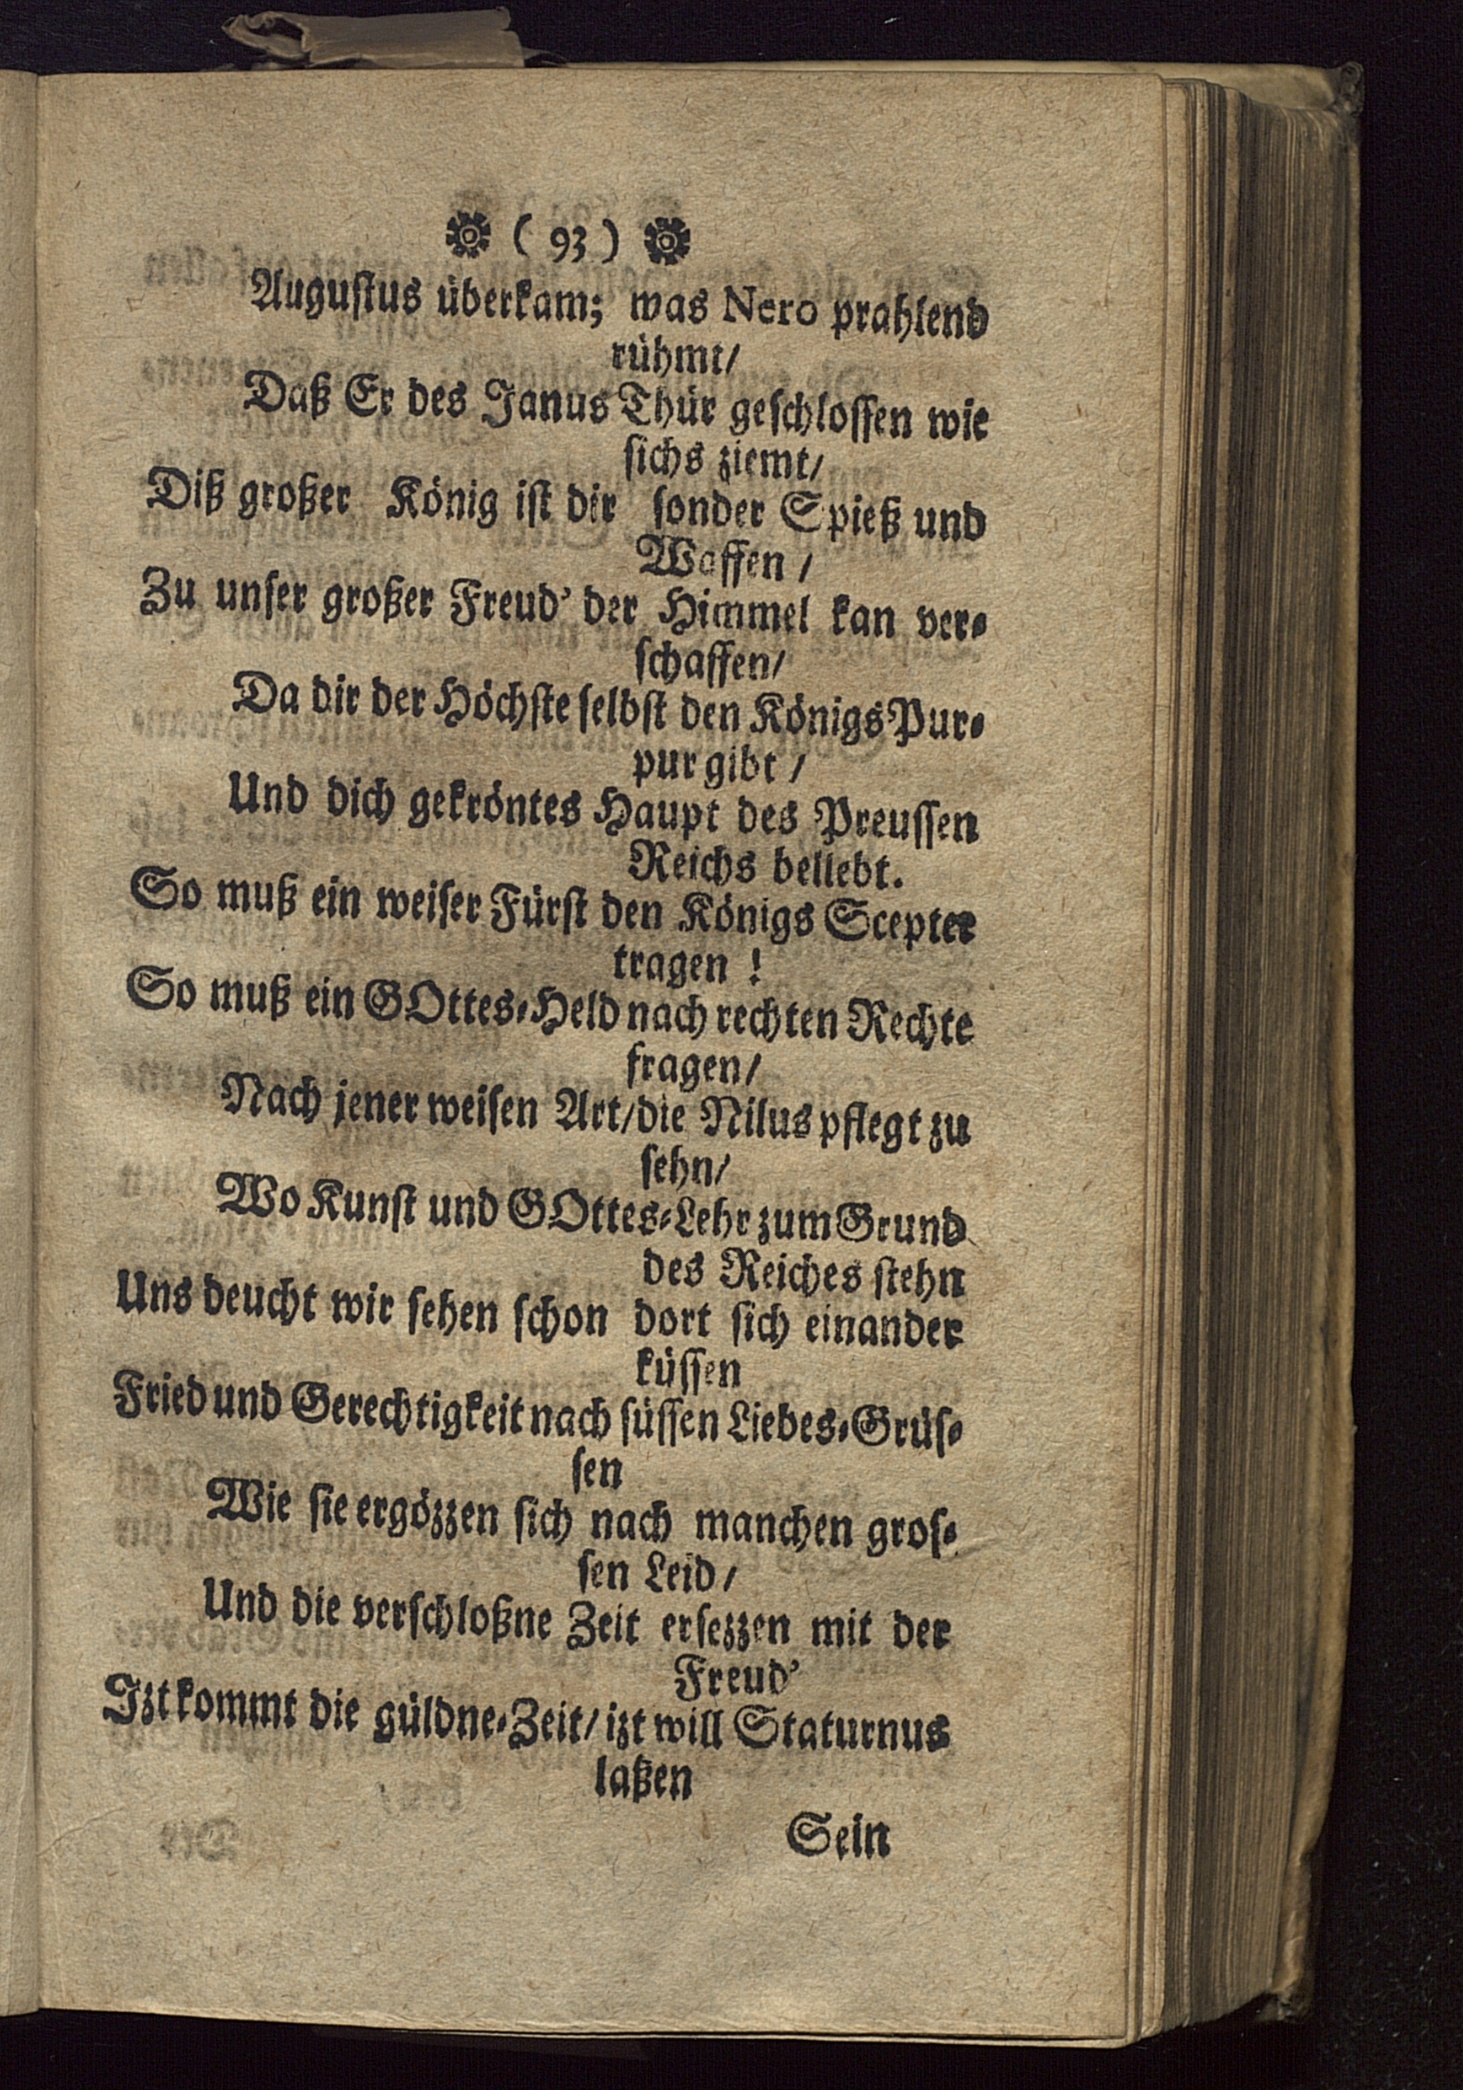 ( 93 )
Augustus überkam; was Nero prahlend
rühmt/
Daß Er des Janus Thür geschlossen wie
sichs ziemt/
Diß großer König ist dir sonder Spieß und
Waffen /
Zu unser großer Freud' der Himmel kan ver-
schaffen/
Da dir der Höchste selbst den Königs Pur-
pur gibt /
Und dich gekröntes Haupt des Preussen
Reichs beliebt.
So muß ein weiser Fürst den Königs Scepter
tragen !
So muß ein GOttes-Held nach rechten Rechte
fragen/
Nach jener weisen Art/die Nilus pflegt zu
sehn/
Wo Kunst und GOttes-Lehr zum Grund
des Reiches stehn
Uns deucht wir sehen schon dort sich einander
küssen
Fried und Gerechtigkeit nach süssen Liebes-Grüs-
sen
Wie sie ergözzen sich nach manchen gros-
sen Leid/
Und die verschloßne Zeit ersezzen mit der
Freud'
Izt kommt die güldne-Zeit/ izt will Staturnus
laßen
Sein